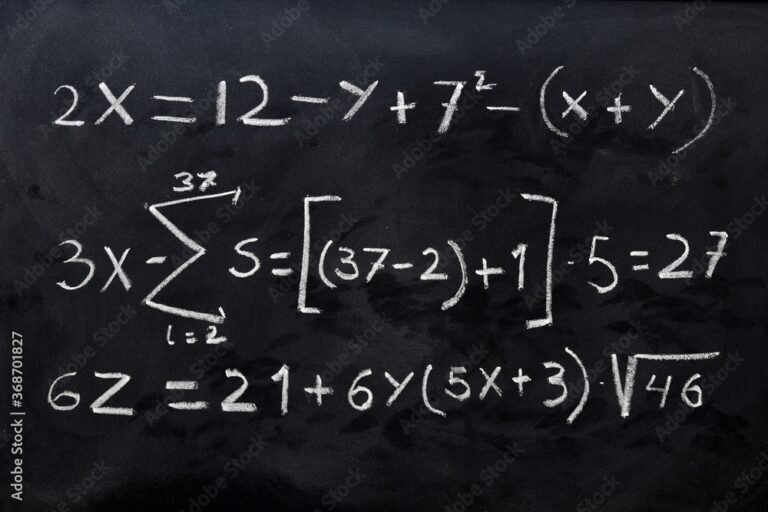 2x = 12 - y + 7² - (x + y)
3x - ∑ 3x i=2 S = [(37-2)+1] · 5 = 27
6z = 21 + 6y(5x+3) · √46
Adobe Stock | #368701827